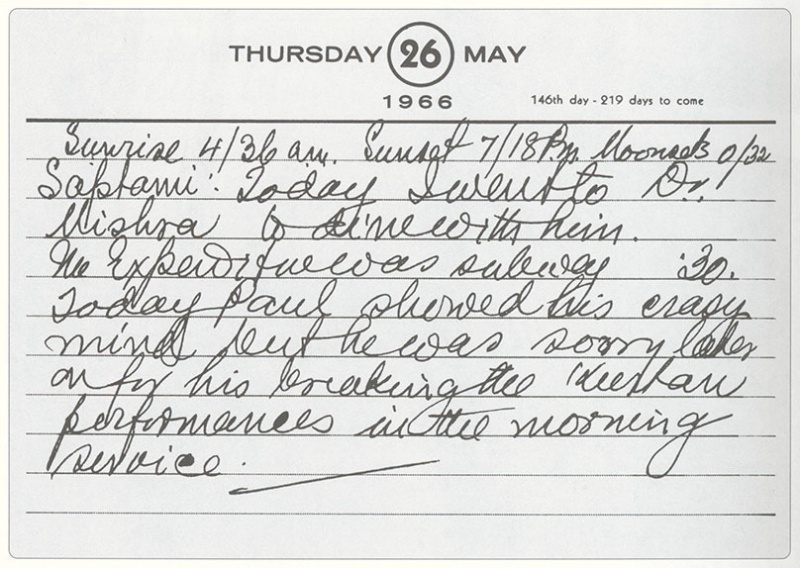 THURSDAY 26 MAY
1966 146th day - 219 days to come
Sunrise 4/36 am. Sunset 7/18 Pm. Moonsets 0/32
Saptami: Today I went to Dr.
Mishra to dine with him.
The Expenditure was subway .30.
Today Paul showed his crazy
mind but he was sorry later
on for his breaking the 'Keertan
performances in the morning
service.